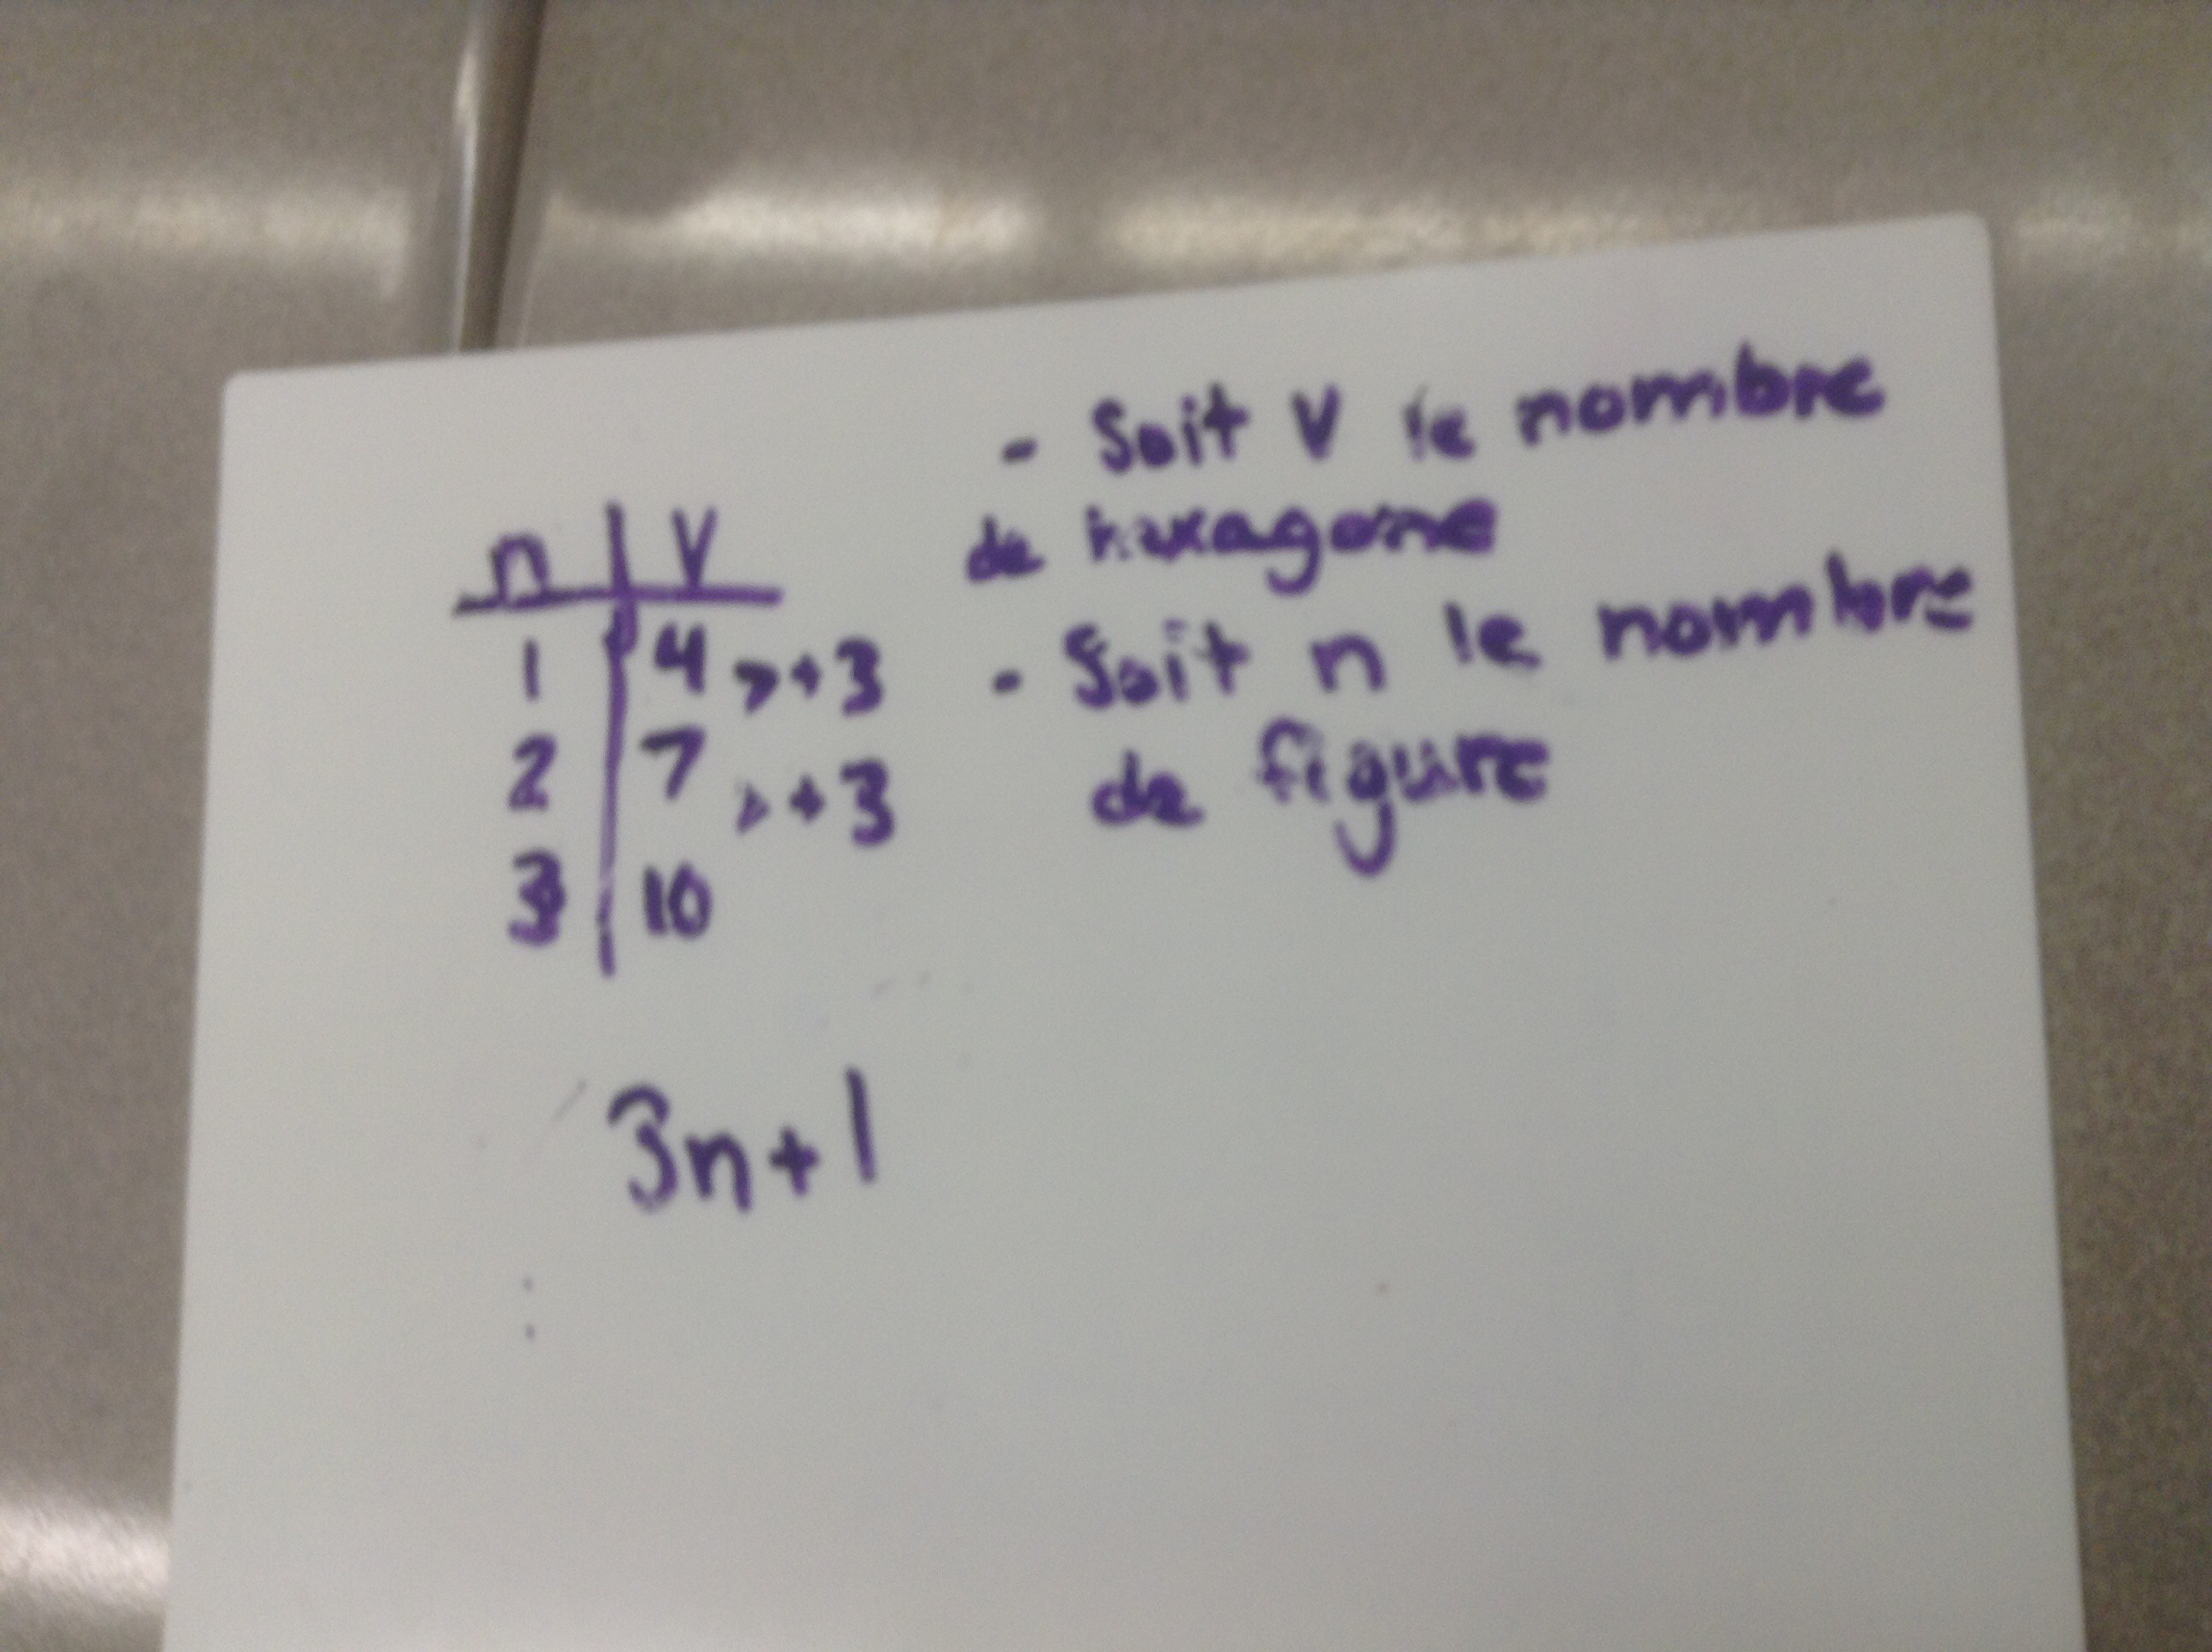 n | V
1 | 4 > +3
2 | 7 > +3
3 | 10
3n+1
- Soit V le nombre
de hexagone
- Soit n le nombre
de figure